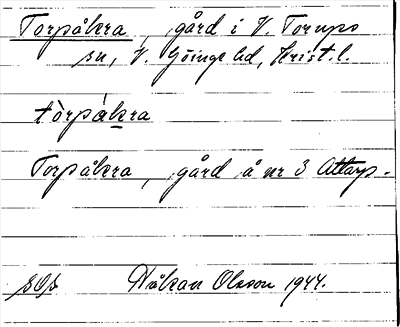 Torpåkra, gård i V. Torups
sn, V. Göinge hd, Krist. l.
tòrpákra
Torpåkra, gård å nr 3 Attarp.
SOS Håkan Olsson 1944.